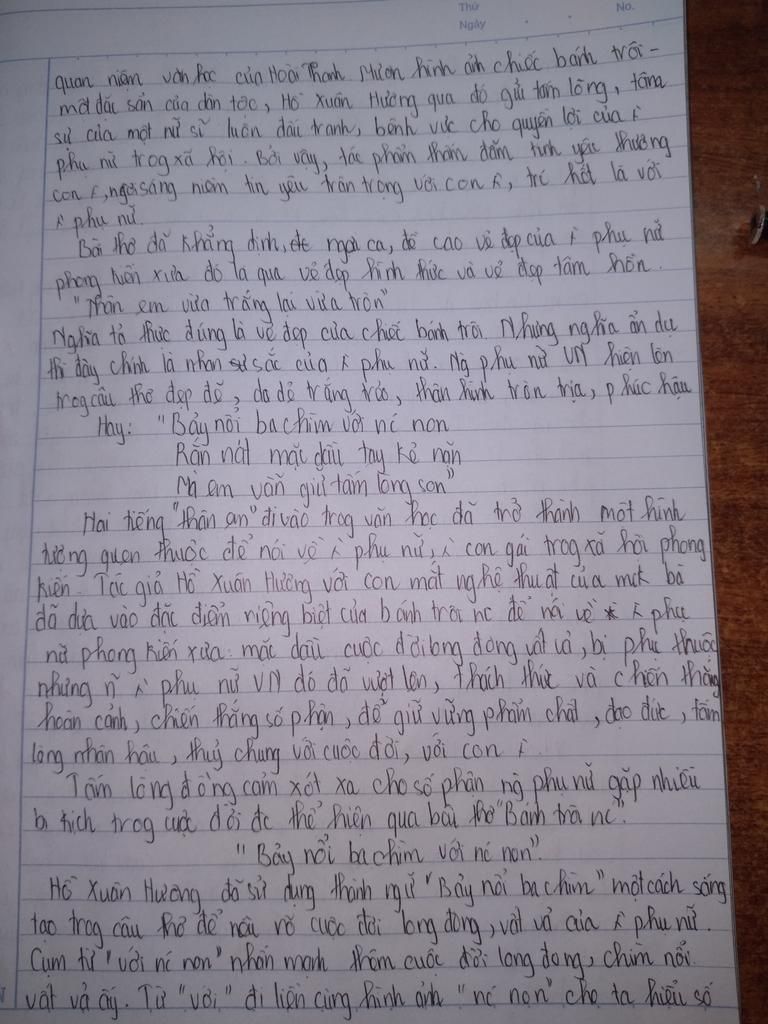 Thứ
No.
Ngày
quan niệm văn học của Hoài Thanh. Mượn hình ảnh chiếc bánh trôi -
một đặc sản của dân tộc, Hồ Xuân Hương qua đó gửi tấm lòng, tâm
sự của một nữ sĩ luôn đấu tranh, bênh vực cho quyền lợi của
phụ nữ trog xã hội. Bởi vậy, tác phẩm thấm đẫm tình yêu thương
con, ngời sáng niềm tin yêu trân trọng với con, trc hết là với
phụ nữ.
Bài thơ đã khẳng định, ngợi ca, đề cao vẻ đẹp của phụ nữ
phong kiến xưa đó là qua vẻ đẹp hình thức và vẻ đẹp tâm hồn.
"Thân em vừa trắng lại vừa tròn"
Nghĩa tả thực đúng là vẻ đẹp của chiếc bánh trôi. Nhưng nghĩa ẩn dụ
thì đây chính là nhan sắc của phụ nữ. Ng phụ nữ VN hiện lên
trog câu thơ đẹp đẽ, da dẻ trắng trẻo, thân hình tròn trịa, phúc hậu
Hay: "Bảy nổi ba chìm với nc non
Rắn nát mặc dầu tay kẻ nặn
Mà em vẫn giữ tấm lòng son"
Hai tiếng "thân em" đi vào trog văn học đã trở thành một hình
tượng quen thuộc để nói về phụ nữ, con gái trog xã hội phong
kiến. Tác giả Hồ Xuân Hương với con mắt nghệ thuật của mk bà
đã dựa vào đặc điểm riêng biệt của bánh trôi nc để nói về phụ
nữ phong kiến xưa: mặc dầu cuộc đời long đong vất vả, bị phụ thuộc
nhưng phụ nữ VN đó đã vượt lên, thách thức và chiến thắng
hoàn cảnh, chiến thắng số phận, để giữ vững phẩm chất, đạo đức, tấm
lòng nhân hậu, thuỷ chung với cuộc đời, với con.
Tấm lòng đồng cảm xót xa cho số phận ng phụ nữ gặp nhiều
bi kịch trog cuộc đời đc thể hiện qua bài thơ "Bánh trôi nc".
"Bảy nổi ba chìm với nc non".
Hồ Xuân Hương đã sử dụng thành ngữ "Bảy nổi ba chìm" một cách sáng
tạo trog câu thơ để nêu rõ cuộc đời long đong, vất vả của phụ nữ.
Cụm từ "với nc non" nhấn mạnh thêm cuộc đời long đong, chìm nổi
vất vả ấy. Từ "với" đi liền cùng hình ảnh "nc non" cho ta hiểu số